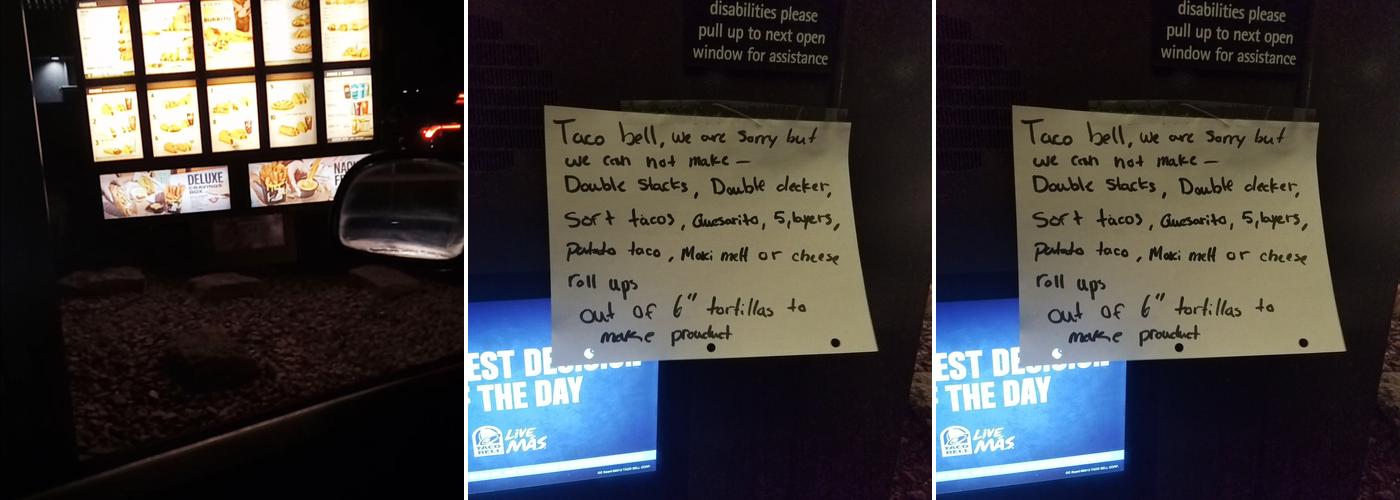 DELUXE
CRAVINGS
BOX
disabilities please
pull up to next open
window for assistance
Taco bell, we are sorry but
we can not make —
Double stacks, Double decker,
Soft tacos, Quesarito, 5, layers,
potato taco, Maki melt or cheese
roll ups
out of 6" tortillas to
make prouduct
EST DECISION
F THE DAY
TACO
BELL
LIVE
MÁS
disabilities please
pull up to next open
window for assistance
Taco bell, we are sorry but
we can not make —
Double stacks, Double decker,
Soft tacos, Quesarito, 5, layers,
potato taco, Maki melt or cheese
roll ups
out of 6" tortillas to
make prouduct
EST DECISION
F THE DAY
TACO
BELL
LIVE
MÁS